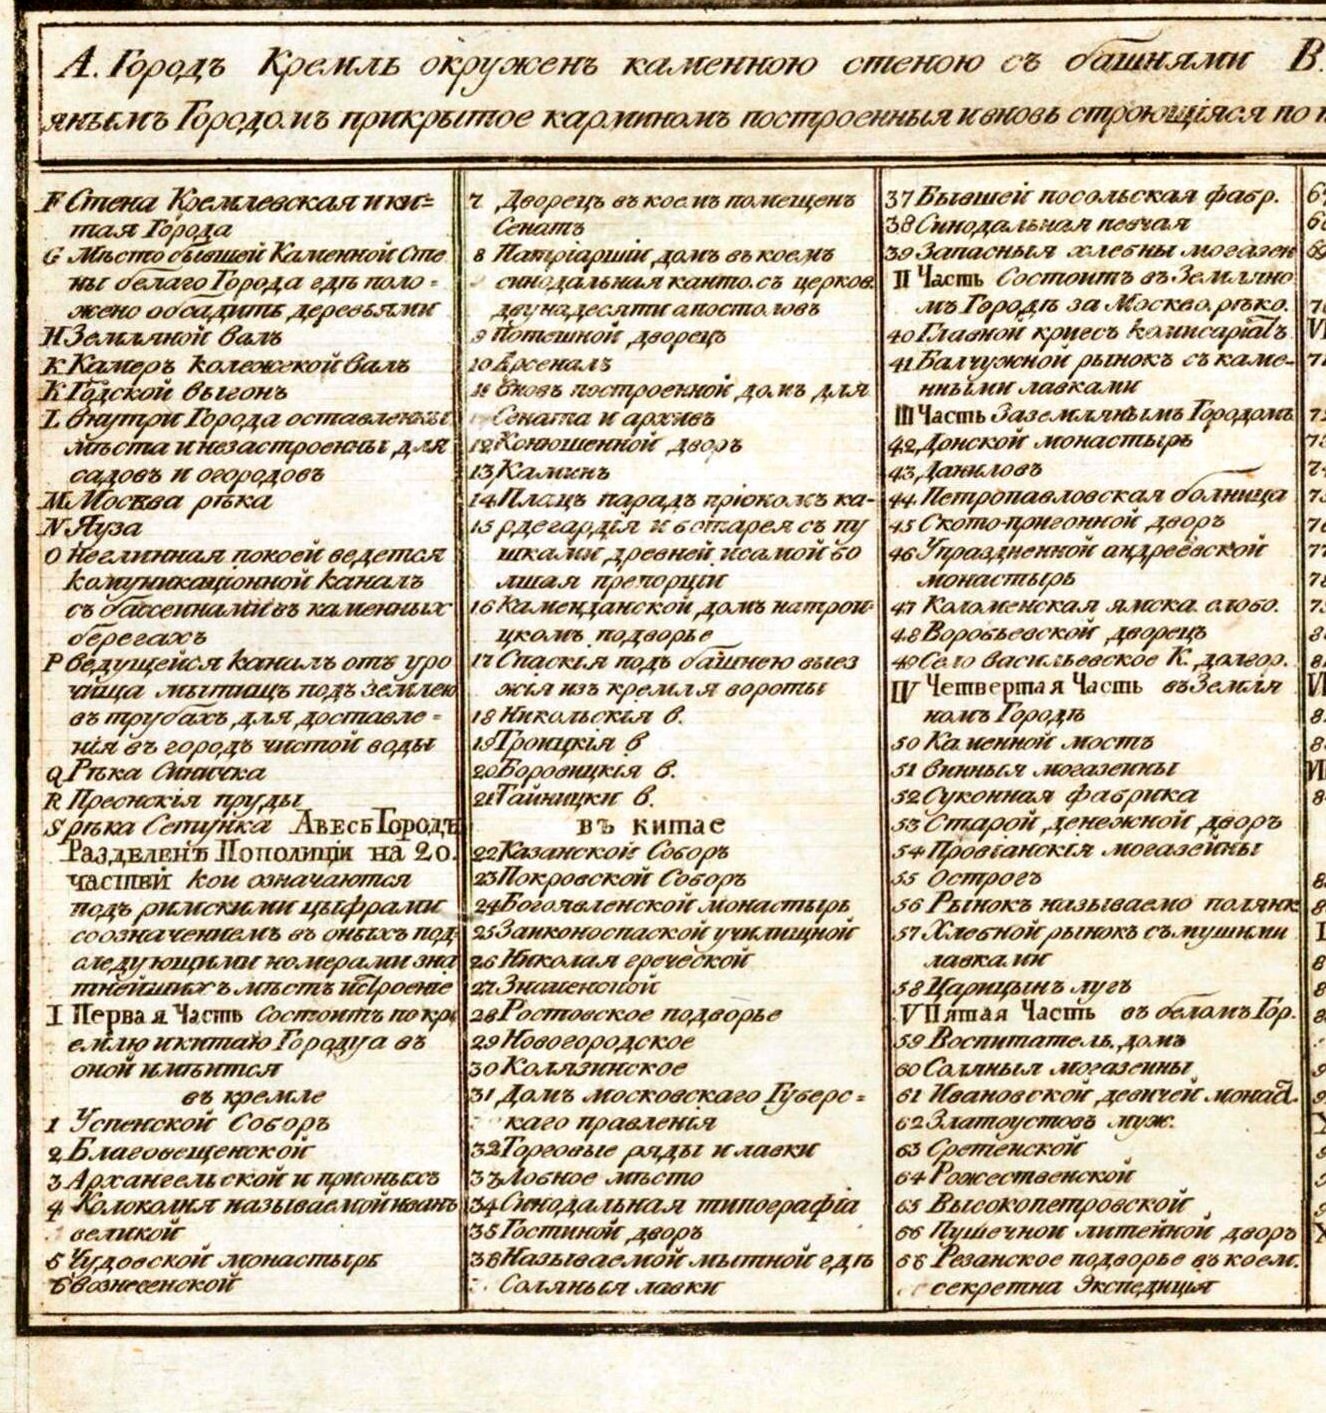 А. Городъ Кремль окруженъ каменною стеною съ башнями В.
янымъ Городомъ прикрытое карминомъ построенныя и вновь строющіяся по
F Стена Кремлевская и ки=
тая Города
G Мѣсто бывшей Каменной Сте
ны белаго Города гдѣ поло=
жено обсадить деревьями
H Земляной валъ
K Камеръ колежской валъ
K Годской выгонъ
L внутри Города оставленны
мѣста и незастроенны для
садовъ и огородовъ
M Москва рѣка
N Яуза
O Неглинная покоей ведется
комуникаціонной каналъ
съ бассеинами въ каменныхъ
берегахъ
P ведущейся каналъ отъ уро
чища мытищъ подъ землею
въ трубахъ для доставле=
нія въ городъ чистой воды
Q Рѣка Синичка
R Преснскія пруды
S рѣка Сетунка А весь Городъ
Разделенъ Пополиціи на 20.
частей кои означаются
подъ римскими цыфрами
со означениемъ въ оныхъ под
следующими номерами зна
тнейшихъ мѣстъ и строение
I Первая Часть Состоитъ по кр
емлю и китаю Городуа въ
оной имѣится
въ кремле
1 Успенской Соборъ
2 Благовещенской
3 Архангельской и прионыхъ
4 Колоколня называемой иванъ
великой
5 Чудовской монастырь
6 вознесенской
7 Дворецъ въ коемъ помещенъ
Сенатъ
8 Патріаршій домъ въ коемъ
синодальная канто. съ церков.
двунадесяти апостоловъ
9 Потешной дворецъ
10 Арсеналъ
11 вновь построенной домъ для
Сената и архивъ
12 Конюшенной дворъ
13 Каминъ
14 Плацъ парадъ пріокомъ ка-
15 рдегардія и ботарея съ пу
шками древней и самой бо
лшая препорціи
16 Каменданской домъ на трои=
цкомъ подворье
17 Спаскія подъ башнею выез
жія изъ кремля вороты
18 Никольскія в.
19 Троицкія в
20 Боровицкія в.
21 Тайницки в.
въ китае
22 Казанской Соборъ
23 Покровской Соборъ
24 Богоявленской монастырь
25 Заиконоспаской училищной
26 Николая греческой
27 Знаменской
28 Ростовское подворье
29 Новогородское
30 Колязинское
31 Домъ московскаго Губерс=
каго правленія
32 Торговые ряды и лавки
33 Лобное мѣсто
34 Синодальная типографіа
35 Гостиной дворъ
36 Называемой мытной гдѣ
Соляныя лавки
37 Бывшей посольская фабр.
38 Синодальная певчая
39 Запасныя хлебны могазен
II Часть Состоитъ въ Земляно
мъ Городѣ за Москво. рѣко.
40 Главной криесъ комисаріатъ
41 Балчужной рынокъ съ каме-
нными лавками
III Часть За землянымъ Городомъ
42 Донской монастырь
43 Даниловъ
44 Петропавловская болница
45 Ското-пригонной дворъ
46 Упраздненной андреевской
монастырь
47 Коломенская ямска. слобо.
48 Воробьевской дворецъ
49 Село васильевское К. долгор.
IV Четвертая Часть въ Земля
номъ Городѣ
50 Каменной мостъ
51 винныя могазеины
52 Суконная фабрика
53 Старой денежной дворъ
54 Провіанскія могазейны
55 Острогъ
56 Рынокъ называемо полянк
57 Хлебной рынокъ съ мушными
лавками
58 Царицынъ лугъ
V Пятая Часть въ беломъ Гор.
59 Воспитатель. домъ
60 Соляныя могазеины
61 Ивановской девичей монас.
62 Златоустовъ муж.
63 Сретенской
64 Рожественской
65 Высокопетровской
66 Пушечнои литейной дворъ
66 Резанское подворье въ коем.
секретна Экспедиція